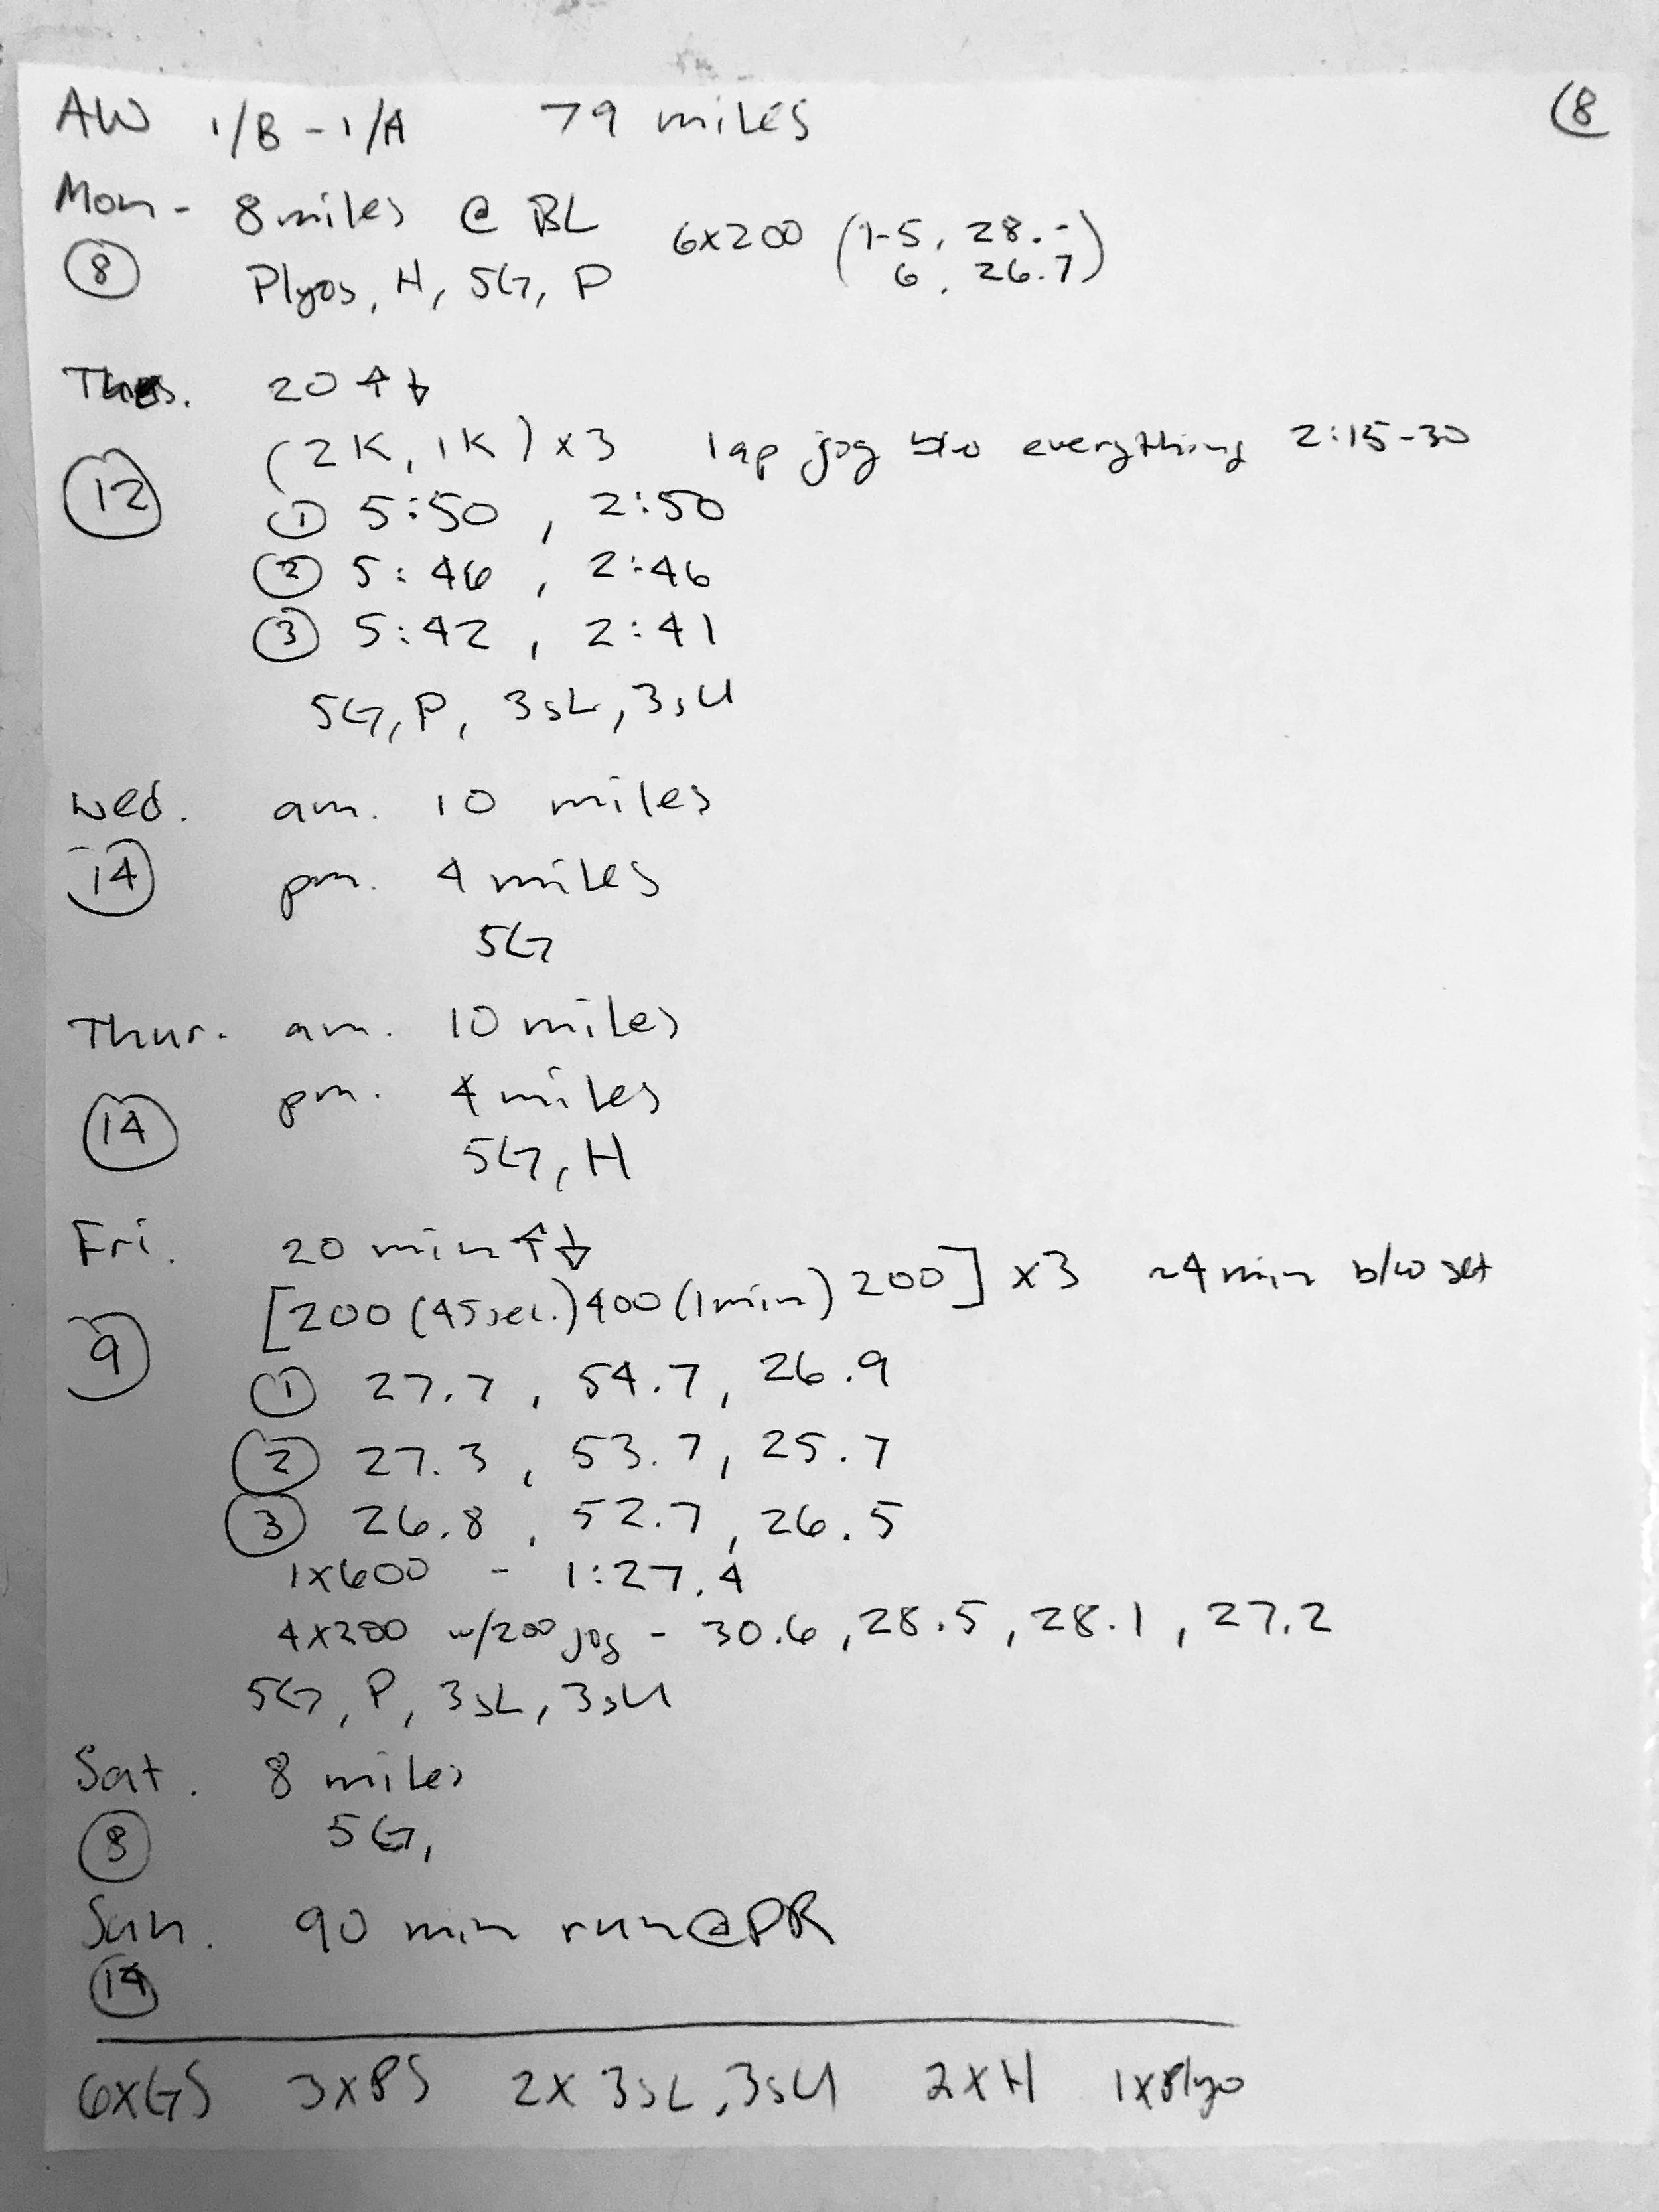 AW 1/B - 1/A 79 miles (8
Mon - 8 miles @ BL 6x200 (1-5, 28.-
6, 26.7)
(8) Plyos, H, 5G, P
20 ↑↓
(2K, 1K) x3 lap jog b/w everything 2:15-30
(12)
① 5:50, 2:50
② 5:46, 2:46
③ 5:42, 2:41
5G, P, 3sL, 3sU
Wed. am. 10 miles
(14) pm. 4 miles
5G
Thur. am. 10 miles
(14) pm. 4 miles
5G, H
Fri. 20 min ↑↓
[200 (45sec.) 400 (1min) 200] x3 ~4 min b/w set
(9)
① 27.7, 54.7, 26.9
② 27.3, 53.7, 25.7
③ 26.8, 52.7, 26.5
1x600 - 1:27.4
4x200 w/200 jog - 30.6, 28.5, 28.1, 27.2
5G, P, 3sL, 3sU
Sat. 8 miles
(8) 5G,
Sun. 90 min run @ PR
(14)
6xGS 3xPS 2x 3sL, 3sU 2xH 1xPlyo